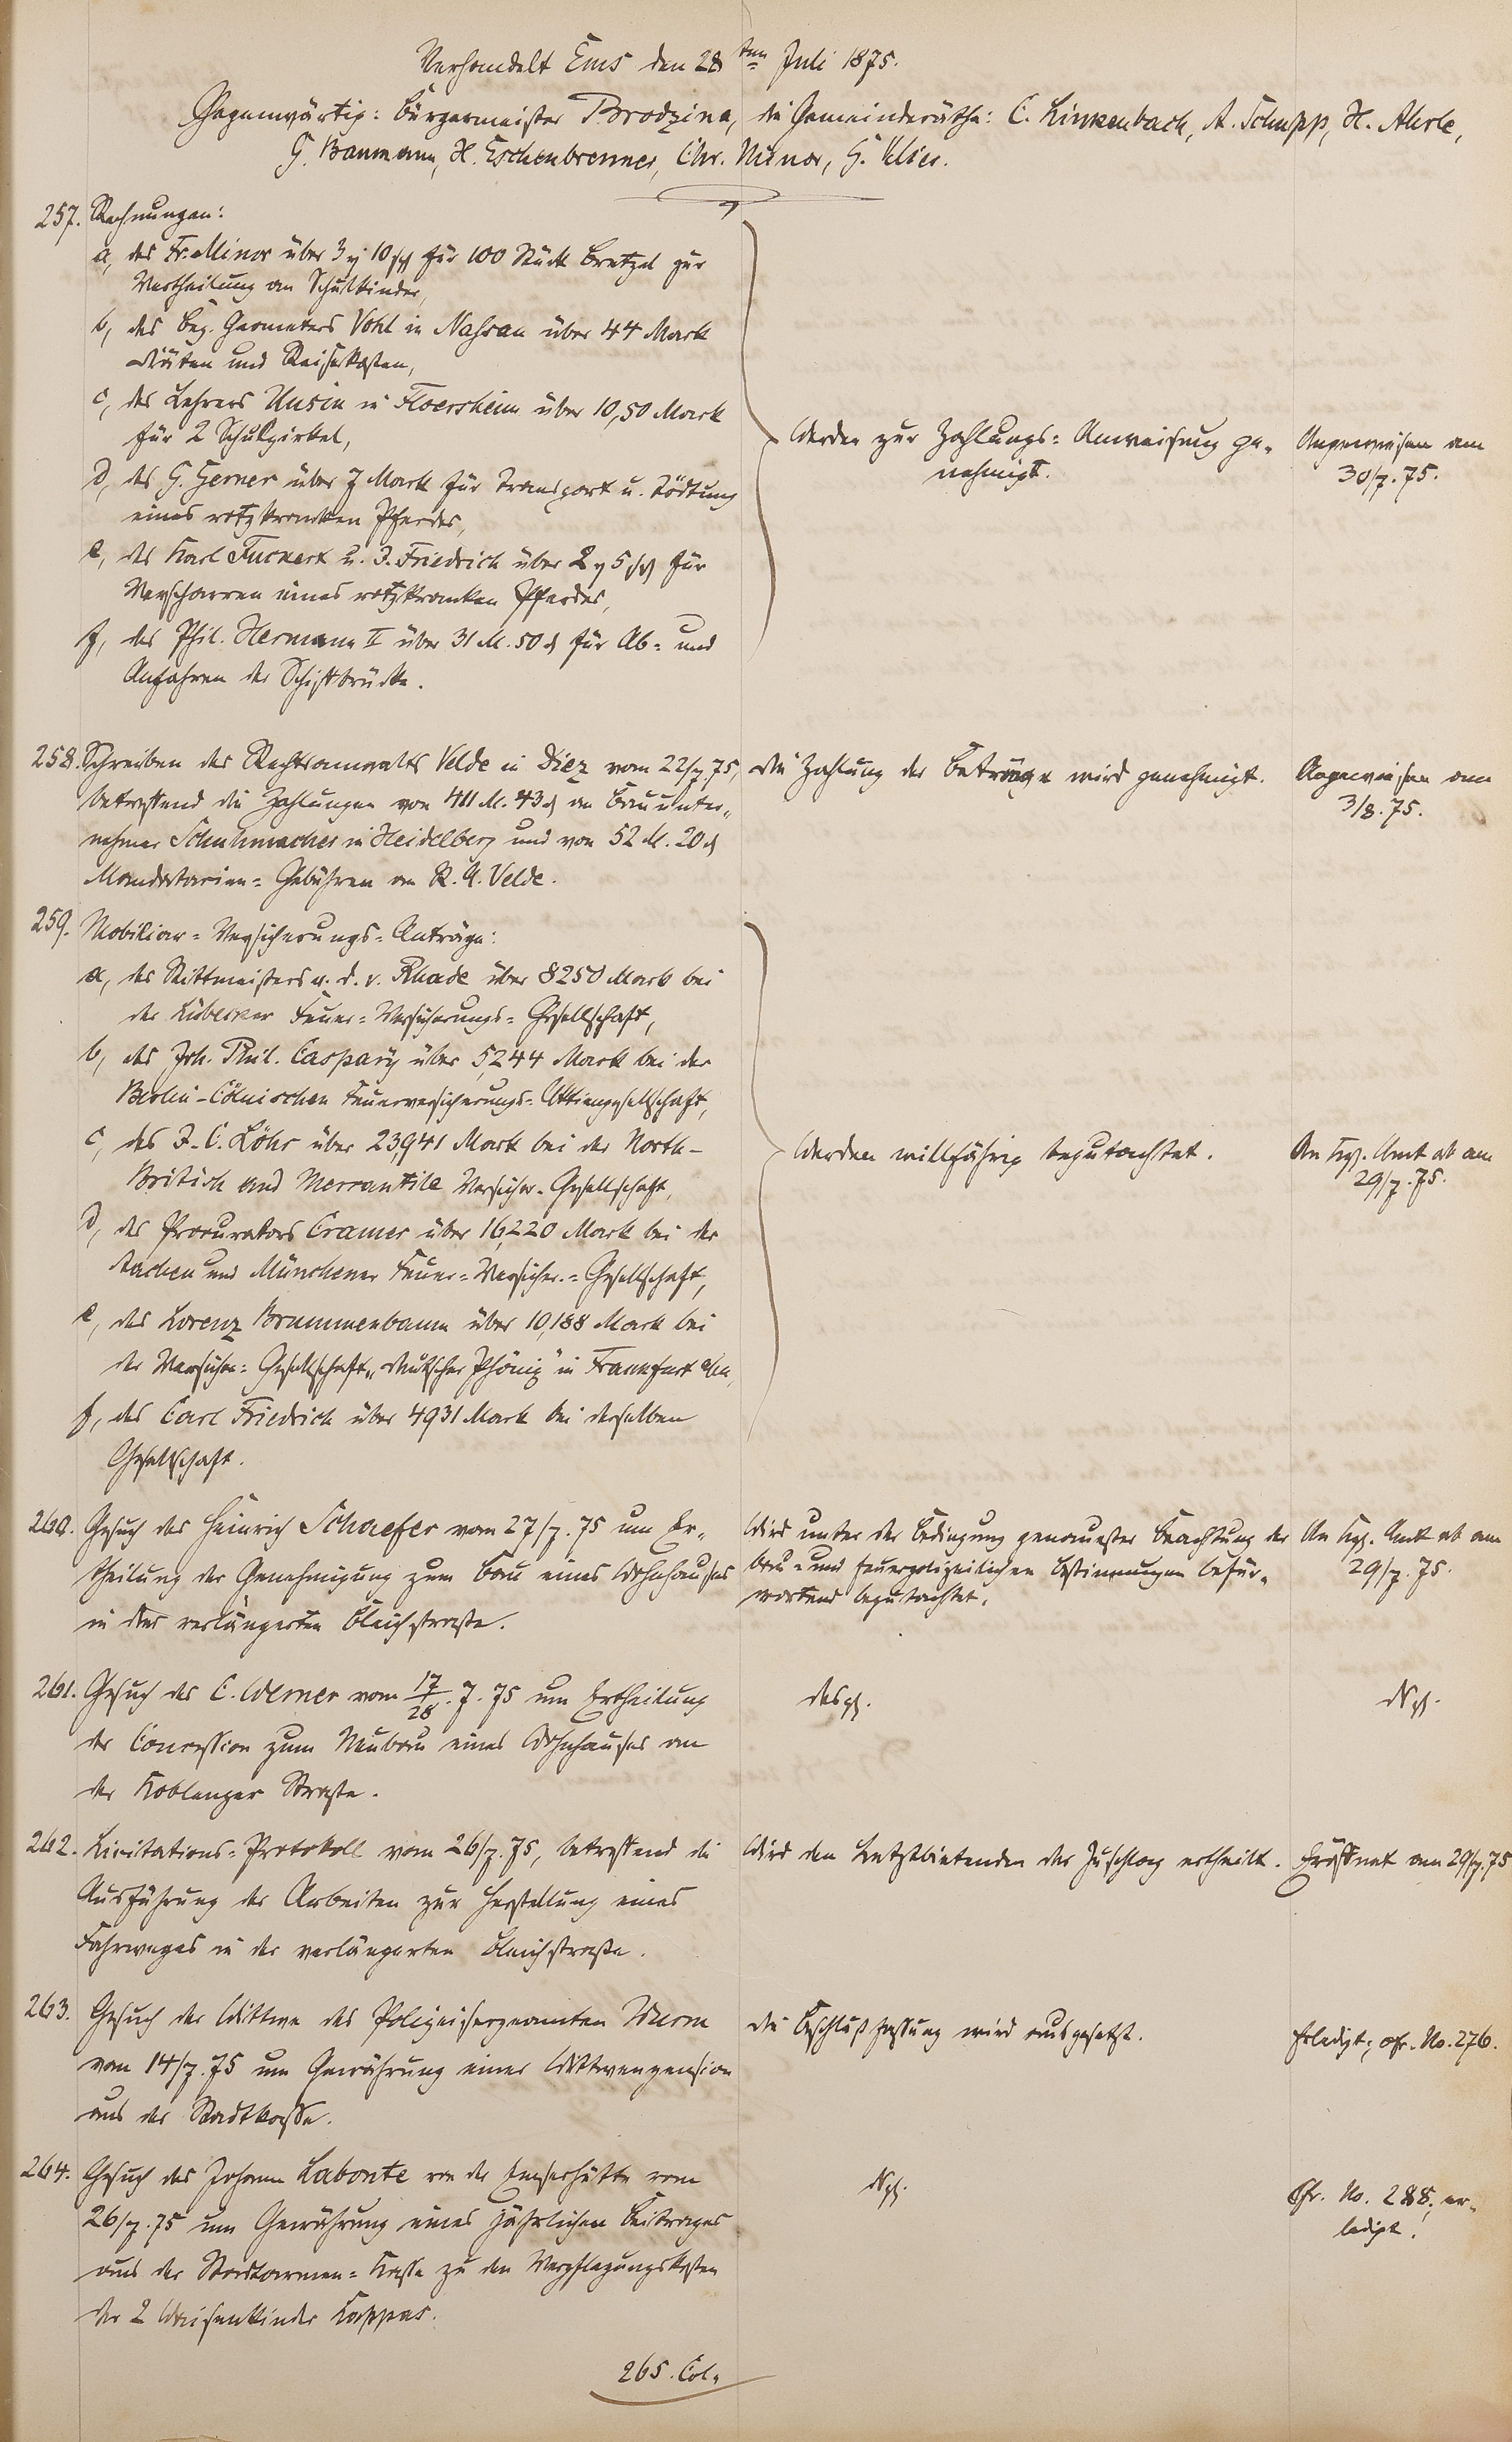 Verhandelt Ems den 28ten Juli 1875.
Gegenwärtig: Bürgermeister Brodzina, die Gemeinderäthe: C. Linkenbach, A. Schupp, H. Ahrle,
G. Baumann, H. Eschenbrenner, Chr. Minor, G. Klier.
257. Rechnungen:
a, des Fr. Minor über 3 10 für 100 Stück Bretzel zur
Vertheilung an Schulkinder,
b, des Bez. Geometers Vohl in Nassau über 44 Mark
Diäten und Reisekosten,
c, des Lehrers Unsin in Floersheim über 10,50 Mark
für 2 Schulzirkel,
d, des G. Gerner über 7 Mark für Transport u. Tödtung
eines rotzkranken Pferdes,
e, des Karl Fuckert u. J. Friedrich über 2 5 für
Verscharren eines rotzkranken Pferdes,
f, des Phil. Hermann II über 31 M. 50 für Ab- und
Anfahren der Schiffbrücke.
Werden zur Zahlungs-Anweisung ge-
nehmigt.
Angewiesen am
30/7. 75.
258. Schreiben des Rechtsanwalts Velde in Diez vom 22/7. 75,
betreffend die Zahlungen von 411 M. 43 an Bauunter-
nehmer Schuhmacher in Heidelberg und von 52 M. 20
Mandatarien-Gebühren an R. A. Velde.
Die Zahlung der Beträge wird genehmigt.
Angewiesen am
3/8. 75.
259. Mobiliar-Versicherungs-Anträge:
a, des Rittmeisters a. D. v. Rhade über 8250 Mark bei
der Lübecker Feuer-Versicherungs-Gesellschaft,
b, des Joh. Phil. Caspary über 5,244 Mark bei der
Berlin-Cölnischen Feuerversicherungs-Aktiengesellschaft,
c, des J. C. Löhr über 23,941 Mark bei der North-
British and Mercantile Versicher.-Gesellschaft,
d, des Procurators Cramer über 16,220 Mark bei der
Aachen und Münchener Feuer-Versicher.-Gesellschaft,
e, des Lorenz Brummenbaum über 10,188 Mark bei
der Versicher.-Gesellschaft „Deutscher Phönix" in Frankfurt a/M,
f, des Carl Friedrich über 4931 Mark bei derselben
Gesellschaft.
Werden willfährig begutachtet.
An Kgl. Amt ab am
29/7. 75.
260. Gesuch des Heinrich Schaefer vom 27/7. 75 um Er-
theilung der Genehmigung zum Bau eines Wohnhauses
in der verlängerten Bleichstraße.
Wird unter der Bedingung genauester Beachtung der
bau- und feuerpolizeilichen Bestimmungen befür-
wortend begutachtet.
An Kgl. Amt ab am
29/7. 75.
261. Gesuch des C. Werner vom 17/28. 7. 75 um Ertheilung
der Concession zum Neubau eines Wohnhauses an
der Koblenzer Straße.
desgl.
Dgl.
262. Licitations-Protokoll vom 26/7. 75, betreffend die
Ausführung der Arbeiten zur Herstellung eines
Fahrweges in der verlängerten Bleichstraße.
Wird den Letztbietenden der Zuschlag ertheilt.
Eröffnet am 29/7. 75
263. Gesuch der Wittwe des Polizeisergeanten Wurm
vom 14/7. 75 um Gewährung einer Wittwenpension
aus der Stadtkasse.
Die Beschlußfassung wird ausgesetzt.
Erledigt; cfr. No. 276.
264. Gesuch des Johann Labonte von der Emserhütte vom
26/7. 75 um Gewährung eines jährlichen Beitrages
aus der Stadtarmen-Kasse zu den Verpflegungskosten
der 2 Waisenkinder Kappas.
Dgl.
Cfr. No. 288; er-
ledigt.
265. Col.